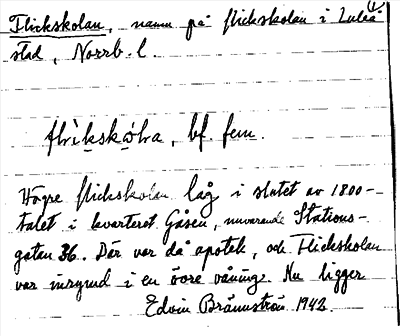 Flickskolan, namn på flickskolan i Luleå
stad, Norrb. l.
flìkskǫ̀lna, bf. fem.
Högre flickskolan låg i slutet av 1800-
talet i kvarteret Gåsen, nuvarande Stations-
gatan 36. Där var då apotek, och Flickskolan
var inrymd i en övre våning. Nu ligger
Edvin Brännström 1942.